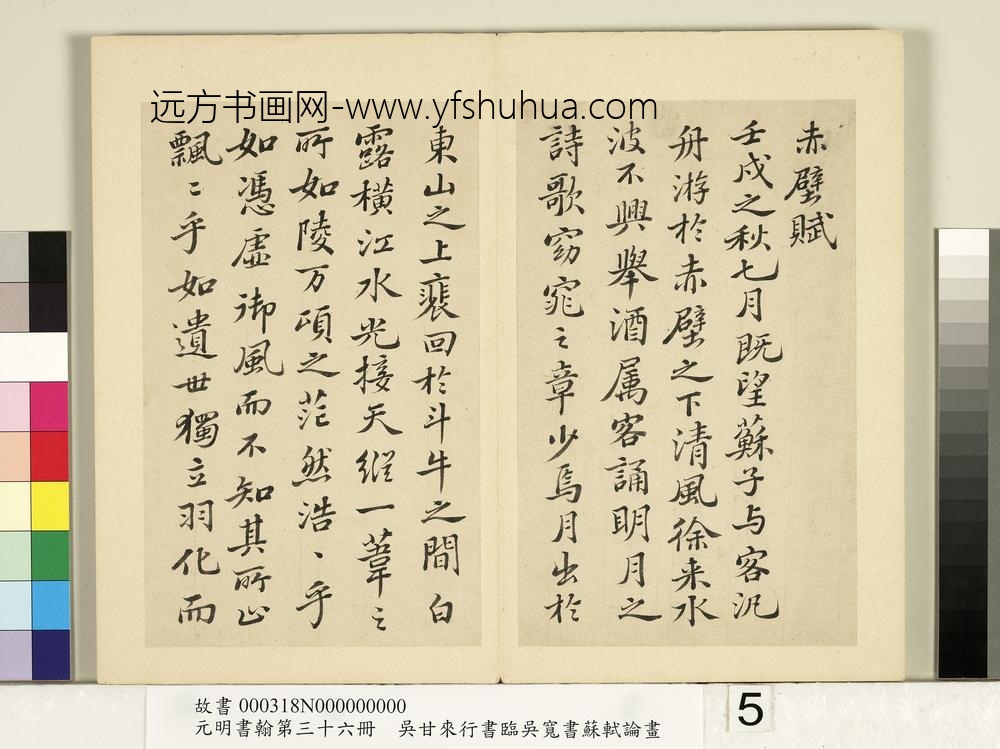 远方书画网-www.yfshuhua.com
赤壁賦
壬戌之秋七月既望蘇子与客汎
舟游於赤壁之下清風徐来水
波不興舉酒属客誦明月之
詩歌窈窕之章少焉月出於
東山之上裵回於斗牛之間白
露横江水光接天縱一葦之
所如陵万頃之茫然浩〻乎
如馮虚御風而不知其所止
飄〻乎如遺世獨立羽化而
故書 000318N000000000
元明書翰第三十六冊 吳甘來行書臨吳寬書蘇軾論畫
5